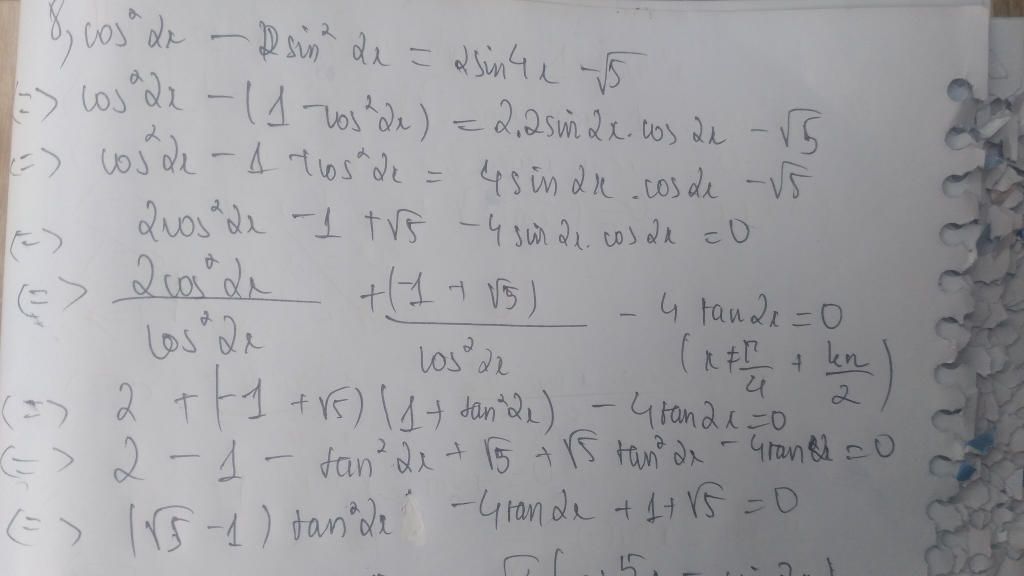 8, cos² 2x - sin² 2x = 2sin4x - √5
<=> cos² 2x - (1 - cos² 2x) = 2.2sin 2x. cos 2x - √5
<=> cos² 2x - 1 + cos² 2x = 4 sin 2x . cos 2x - √5
<=> 2cos² 2x - 1 + √5 - 4 sin 2x. cos 2x = 0
<=> 2cos² 2x / cos² 2x + (-1 + √5) / cos² 2x - 4 tan 2x = 0
(x ≠ π/4 + kπ/2)
<=> 2 + (-1 + √5) (1 + tan² 2x) - 4tan2x = 0
<=> 2 - 1 - tan² 2x + √5 + √5 tan² 2x - 4tan 2x = 0
<=> (√5 - 1) tan² 2x - 4tan 2x + 1 + √5 = 0